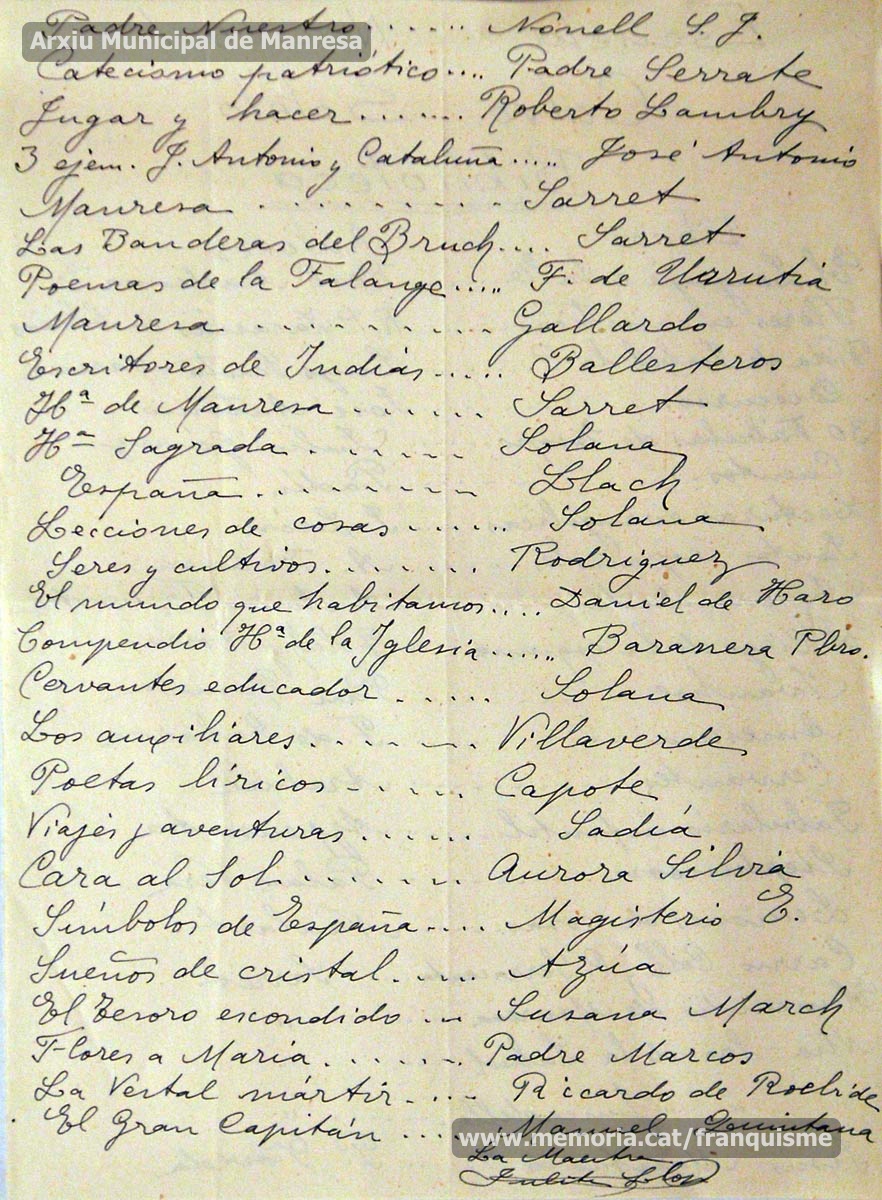 Padre Nuestro ...... Nonell S. J.
Arxiu Municipal de Manresa
Catecismo patriótico .... Padre Serrate
Jugar y hacer ....... Roberto Lambry
3 ejem. J. Antonio y Cataluña ..... José Antonio
Manresa ......... Sarret
Las Banderas del Bruch .... Sarret
Poemas de la Falange ..... F. de Urrutia
Manresa .......... Gallardo
Escritores de Indias ..... Ballesteros
Hª de Manresa ...... Sarret
Hª Sagrada ...... Solana
España ........ Llach
Lecciones de cosas ...... Solana
Seres y cultivos ....... Rodriguez
El mundo que habitamos .... Daniel de Haro
Compendio Hª de la Iglesia ...... Baranera Pbro.
Cervantes educador ..... Solana
Los auxiliares ...... Villaverde
Poetas líricos ..... Capote
Viajes y aventuras ..... Sadía
Cara al Sol ....... Aurora Silvia
Símbolos de España .... Magisterio E.
Sueños de cristal .... Azúa
El Tesoro escondido ... Susana March
Flores a María ...... Padre Marcos
La Vestal mártir .... Riccardo de
El Gran Capitán .... Manuel Quintana
www.memoria.cat/franquisme
La Maestra